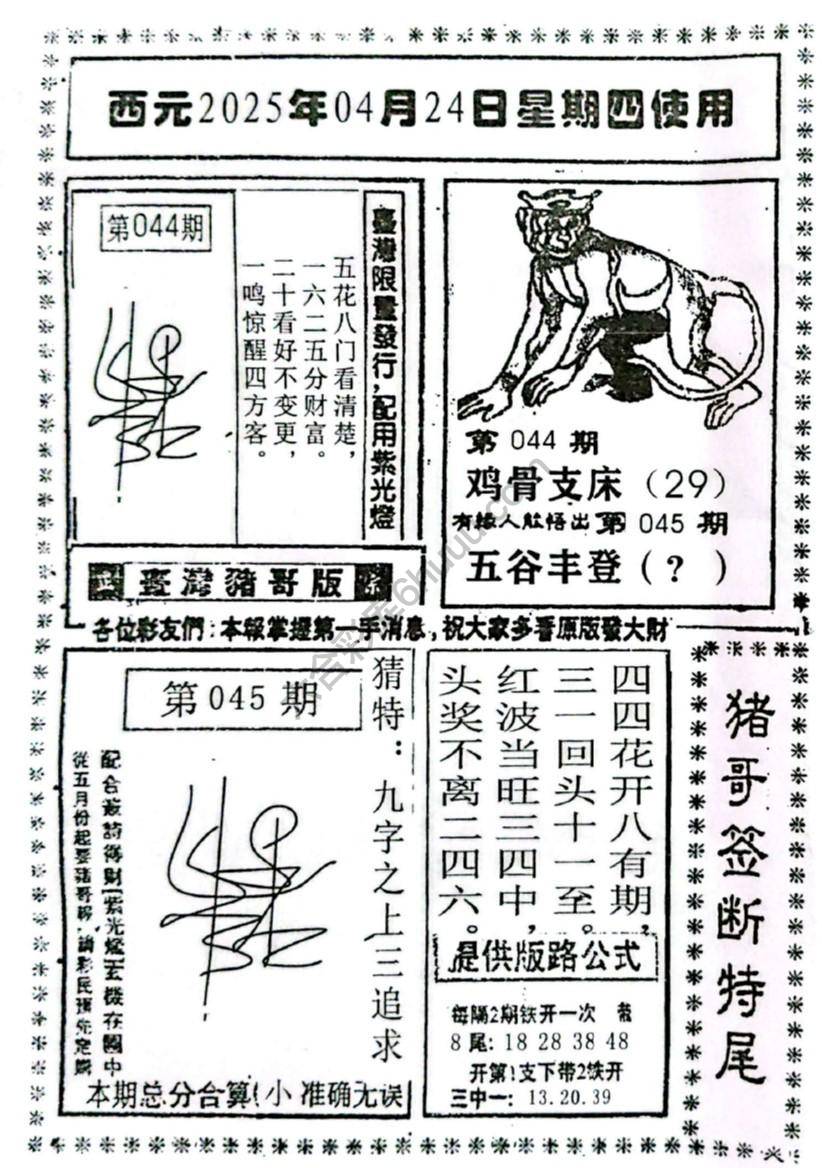 西元2025年04月24日星期四使用
第044期
臺灣限量發行,配用紫光燈
五花八门看清楚,
一六二五分财富。
二十看好不变更,
一鸣惊醒四方客。
臺灣豬哥版
第 044 期
鸡骨支床（29）
有缘人能悟出 第 045 期
五谷丰登（？）
各位彩友們:本報掌握第一手消息,祝大家多看原版發大財
第 045 期
猜特：九字之上三追求
從五月份起要豬哥
本期总分合算小 准确无误
四四花开八有期,
三一回头十一至。
红波当旺三四中,
头奖不离二四六。
提供版路公式
每隔2期铁开一次
8 尾: 18 28 38 48
开第1支下带2铁开
三中一: 13.20.39
猪哥签断特尾
六合彩库6huuu.com